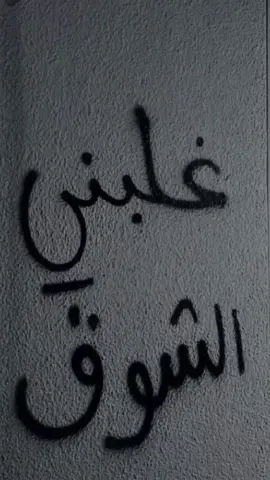 غلبني
الشوق